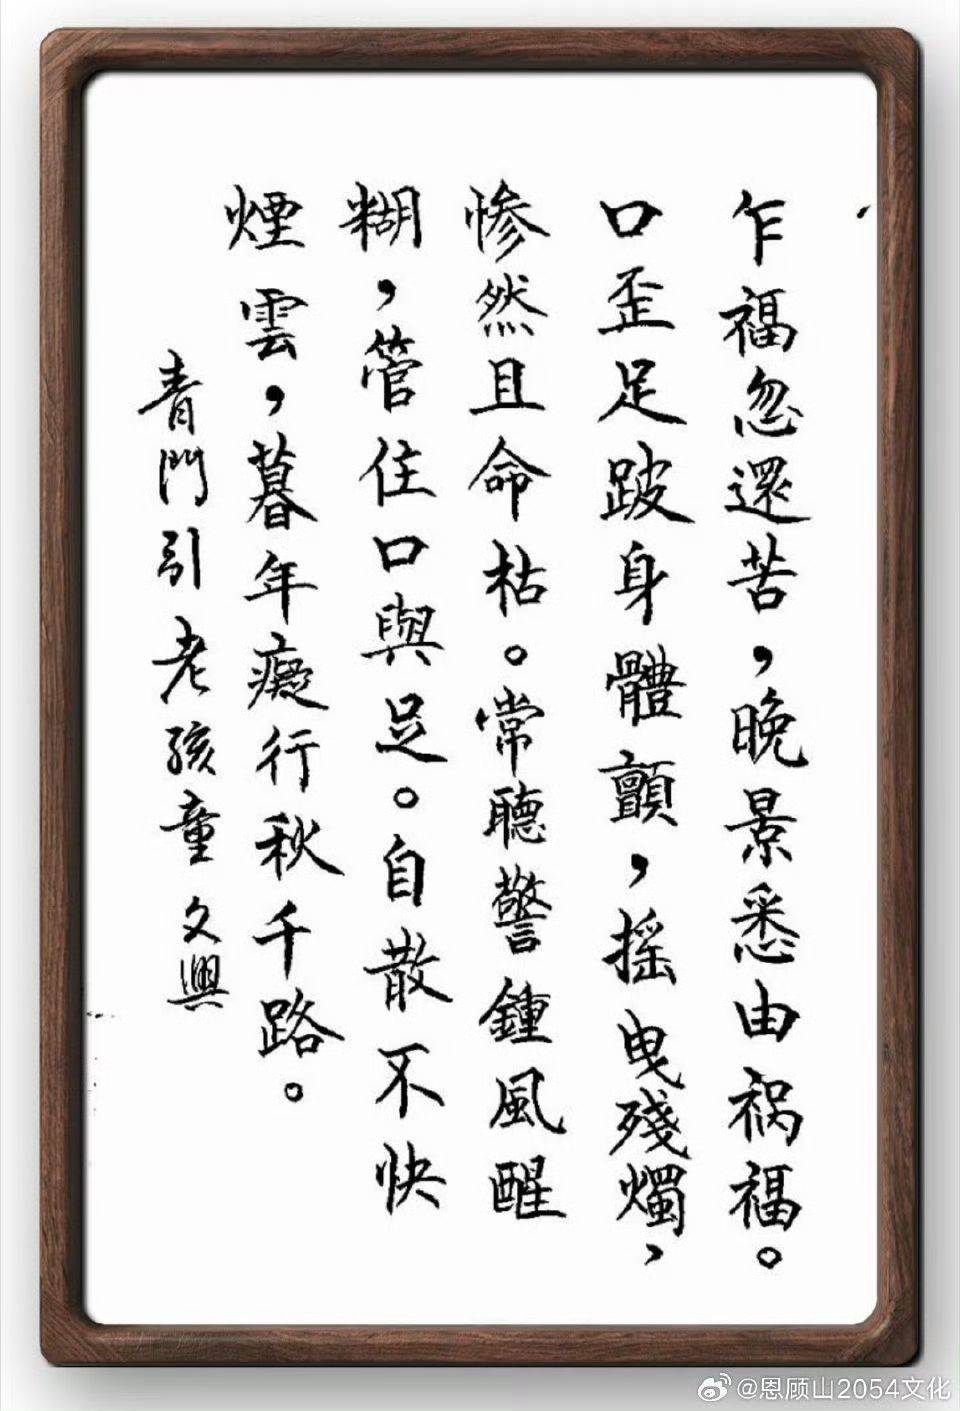 乍福忽還苦，晚景悉由祸福。
口歪足跛身體顫，摇曳殘燭，
惨然且命枯。常聽警鍾風醒
糊，管住口與足。自散不快
煙雲，暮年癡行秋千路。
青門引老孩童文興
@恩顾山2054文化